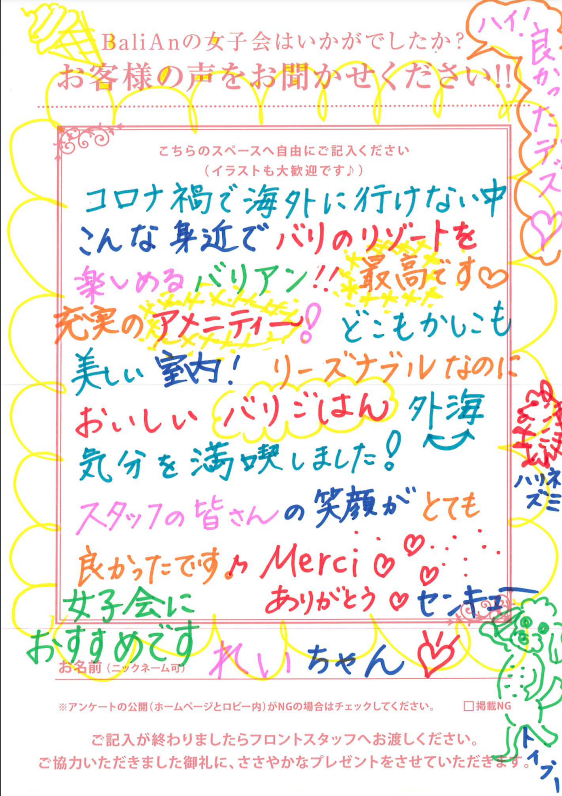 BaliAnの女子会はいかがでしたか?
お客様の声をお聞かせください!!
ハイ!
良かったデス♡
こちらのスペースへ自由にご記入ください
(イラストも大歓迎です♪)
コロナ禍で海外に行けない中
こんな身近でバリのリゾートを
楽しめるバリアン!! 最高です♡
充実のアメニティー! どこもかしこも
美しい室内! リーズナブルなのに
おいしい バリごはん 外海
気分を満喫しました!
スタッフの皆さんの笑顔がとても
良かったです♪ Merci ♡♡♡
ありがとう♡センキュー
ハリネズミ
女子会に
おすすめです
お名前(ニックネーム可) れいちゃん♡
※アンケートの公開(ホームページとロビー内)がNGの場合はチェックしてください。 □掲載NG
ご記入が終わりましたらフロントスタッフへお渡しください。
ご協力いただきました御礼に、ささやかなプレゼントをさせていただきます。
トイプー